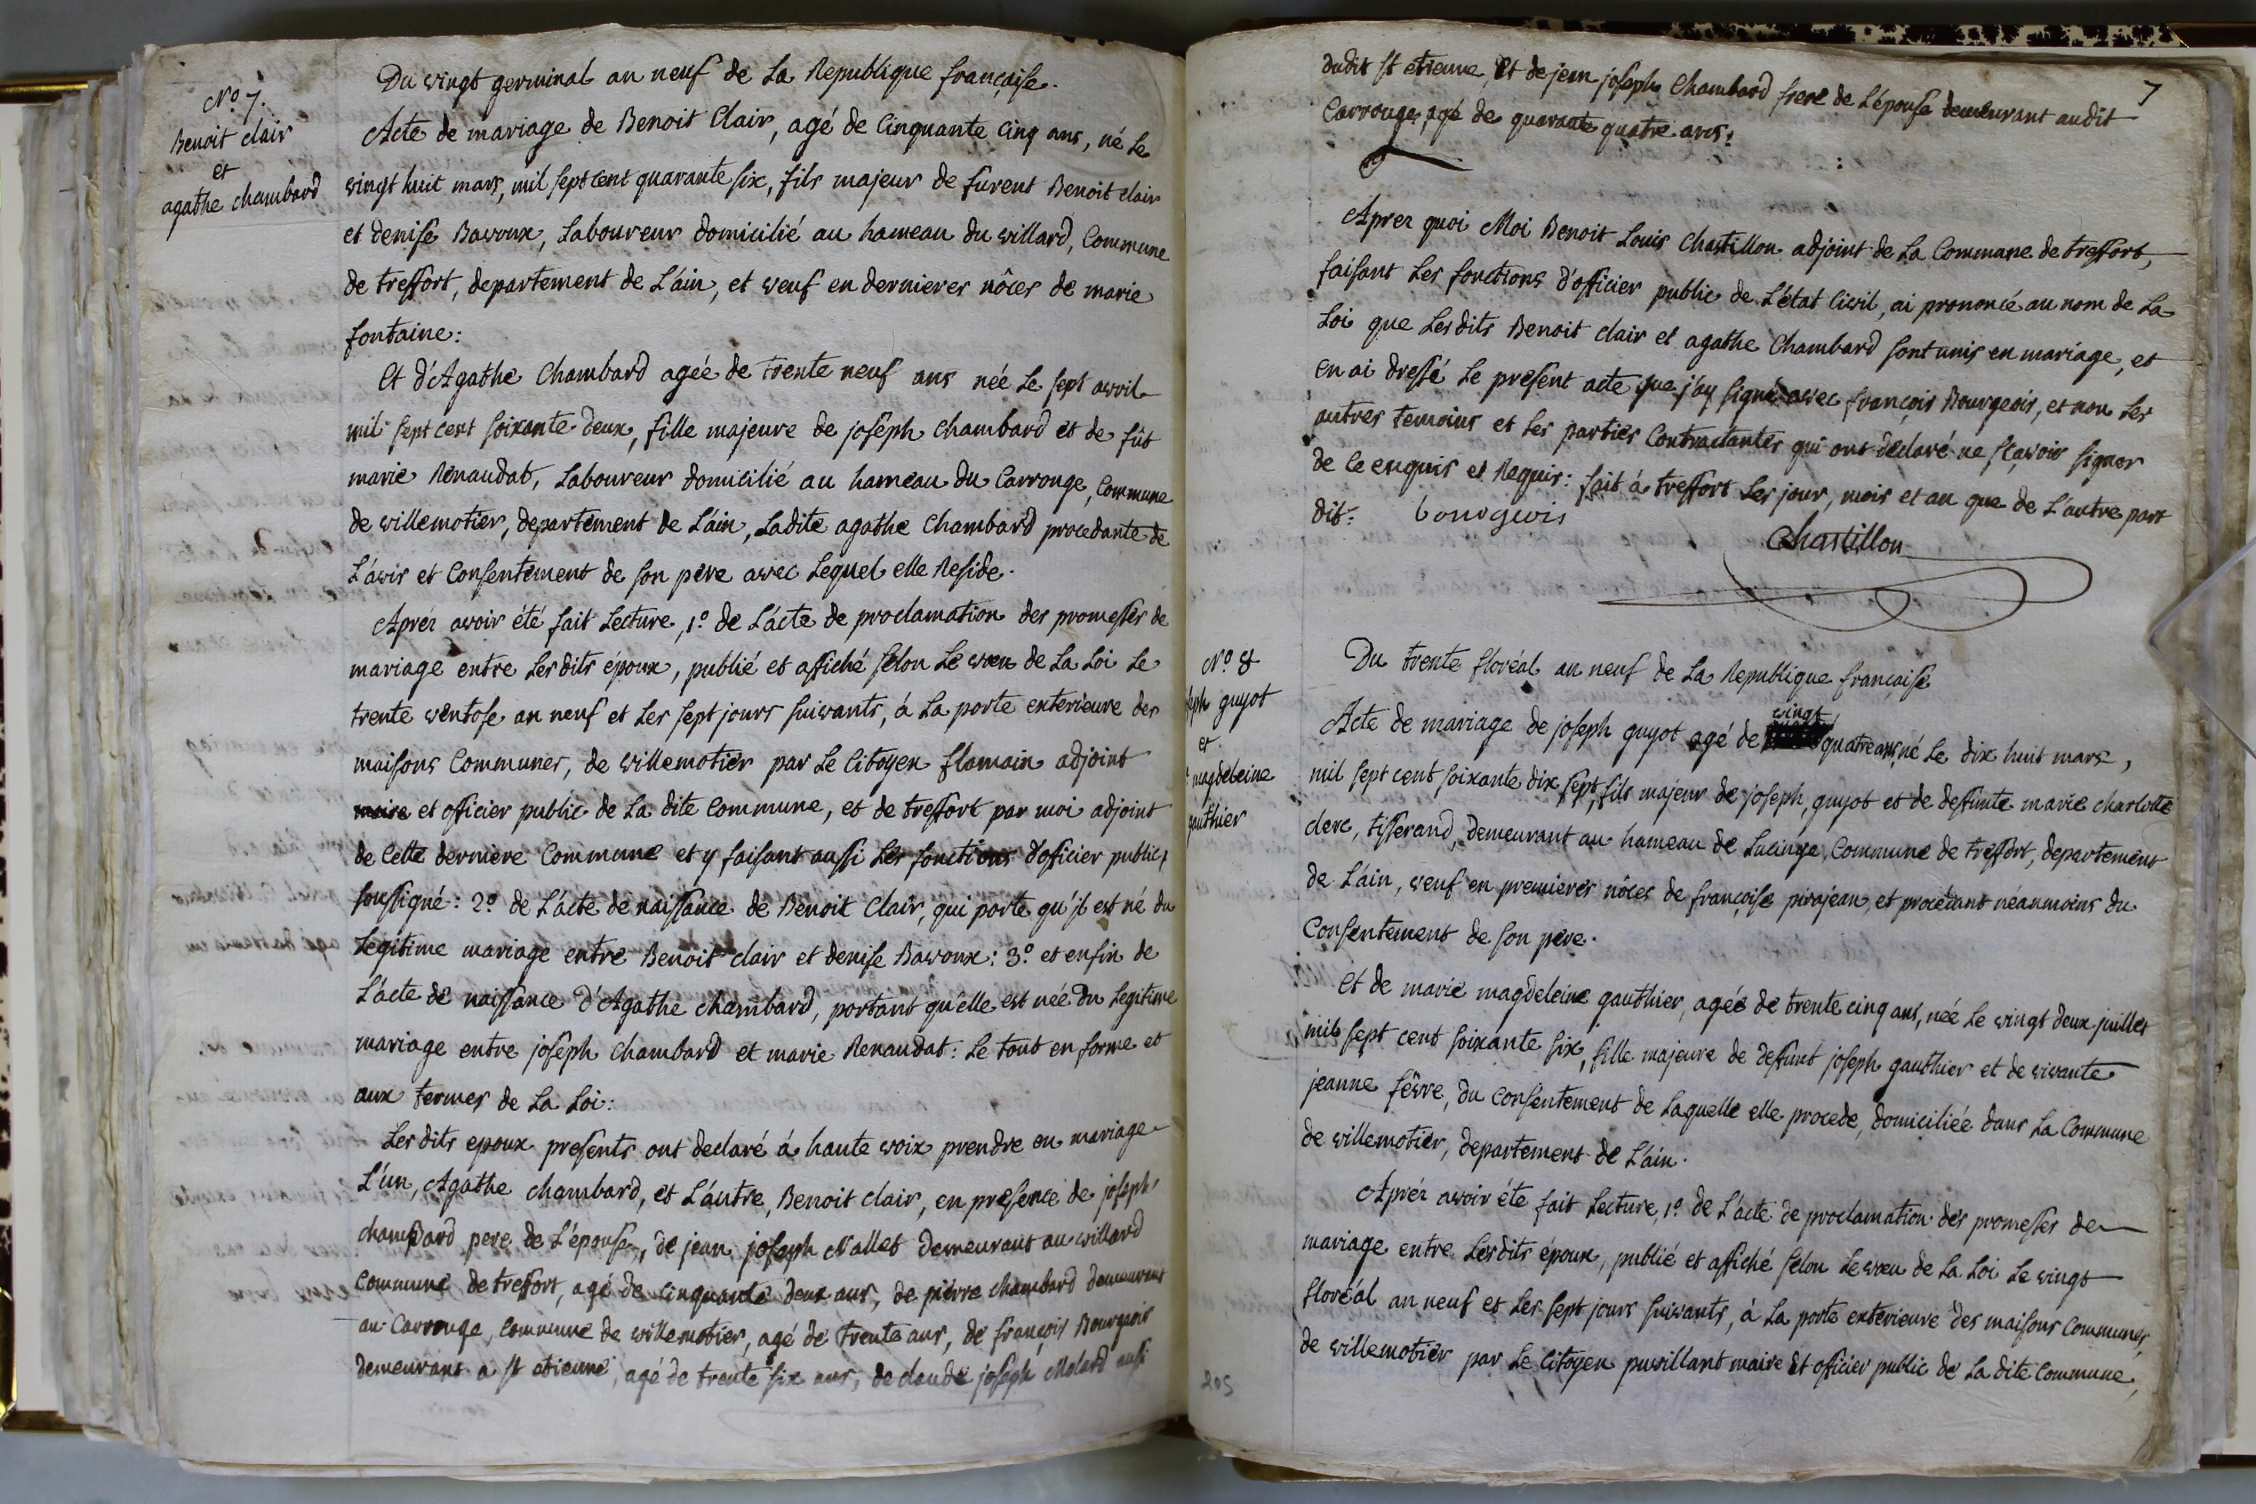 N.o 7.
Benoit clair
et
agathe chambard
Du vingt germinal an neuf de La Republique française.
Acte de mariage de Benoit Clair, agé de Cinquante Cinq ans, né Le
vingt huit mars, mil sept cent quarante six, fils majeur de furent Benoit clair
et denise Bavoux, Laboureur domicilié au hameau du villard, Commune
de treffort, departement de L'áin, et veuf en dernieres nôces de marie
fontaine:
Et d'Agathe Chambard agée de trente neuf ans née Le sept avril
mil sept cent soixante deux, fille majeure de joseph chambard et de fût
marie Renaudat, Laboureur domicilié au hameau du Carrouge, Commune
de villemotier, departement de L'áin, Ladite agathe Chambard procedante de
L'ávis et Consentement de son pére avec Lequel elle Reside.
Aprés avoir été fait Lecture, 1.o de L'ácte de proclamation des promesses de
mariage entre Lesdits époux, publié et affiché selon Le vœu de La Loi Le
trente ventose an neuf et Les sept jours suivants, á La porte exterieure des
maisons Communes, de villemotier par Le Citoyen flamain adjoint
maire et officier public de La dite Commune, et de treffort par moi adjoint
de Cette derniere Commune et y faisant aussi Les fonctions d'officier public,
soussigné: 2.o de L'ácte de naissance de Benoit Clair, qui porte qu'il est né du
Legitime mariage entre Benoit clair et denise Bavoux: 3.o et enfin de
L'ácte de naissance d'Agathe chambard, portant qu'elle est née du Legitime
mariage entre joseph Chambard et marie Renaudat: Le tout en forme et
aux termes de La Loi:
Lesdits epoux presents ont declaré á haute voix prendre en mariage
L'ún, Agathe chambard, et L'áutre, Benoit clair, en presence de joseph
chambard pere de L'épouse, de jean joseph Nallet demeurant au villard
Commune de treffort, agé de Cinquante deux ans, de pierre chambard demeurant
au Carrouge, Commune de villemotier, agé de trente ans, de françois Bourgeois
demeurant a st etienne, agé de trente six ans, de claude joseph Molard aussi
7
dudit st etienne, et de jean joseph Chambard frere de L'épouse demeurant audit
Carrouge, agé de quarante quatre ans:
Aprez quoi Moi Benoit Louis Chastillon adjoint de La Commune de treffort,
faisant Les fonctions d'officier public de L'état Civil, ai prononcé au nom de La
Loi que Lesdits Benoit clair et agathe Chambard sont unis en mariage, et
en ai dressé Le present acte que j'ay signé avec françois Bourgeois, et non Les
autres temoins et Les parties Contractantes qui ont declaré ne sçavoir signer
de Ce enquis et Requis: fait á treffort Les jour, mois et an que de L'autre part
dit: bourgeois
Chastillon
N.o 8
seph guyot
et
magdeleine
gauthier
Du trente floréal an neuf de La Republique française
vingt
Acte de mariage de joseph guyot agé de quatre ans né Le dix huit mars,
mil sept cent soixante dix sept, fils majeur de joseph guyot et de deffunte marie charlotte
clerc, tisserand, Demeurant au hameau de Lucinge, Commune de treffort, departement
de L'áin, veuf en premieres nôces de françoise pirajean, et procédant néanmoins du
Consentement de son pére.
Et de marie magdeleine gauthier, agée de trente cinq ans, née Le vingt deux juillet
mil sept cent soixante six, fille majeure de deffunt joseph gauthier et de vivante
jeanne févre, du Consentement de Laquelle elle procede, domiciliée dans La Commune
de villemotier, departement de L'áin.
Aprés avoir éte fait Lecture, 1.o de L'ácte de proclamation des promesses de
mariage entre Lesdits époux, publié et affiché sélon Le vœu de La Loi Le vingt
floréal an neuf et Les sept jours suivants, á La porte exterieure des maisons Communes,
de villemotier par Le Citoyen puvillant maire et officier public de La dite Commune,
205